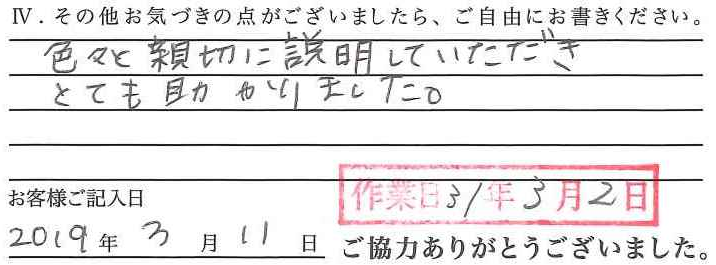 Ⅳ．その他お気づきの点がございましたら、ご自由にお書きください。
色々と親切に説明していただき
とても助かりました。
お客様ご記入日
作業日31年3月2日
2019年3月11日
ご協力ありがとうございました。